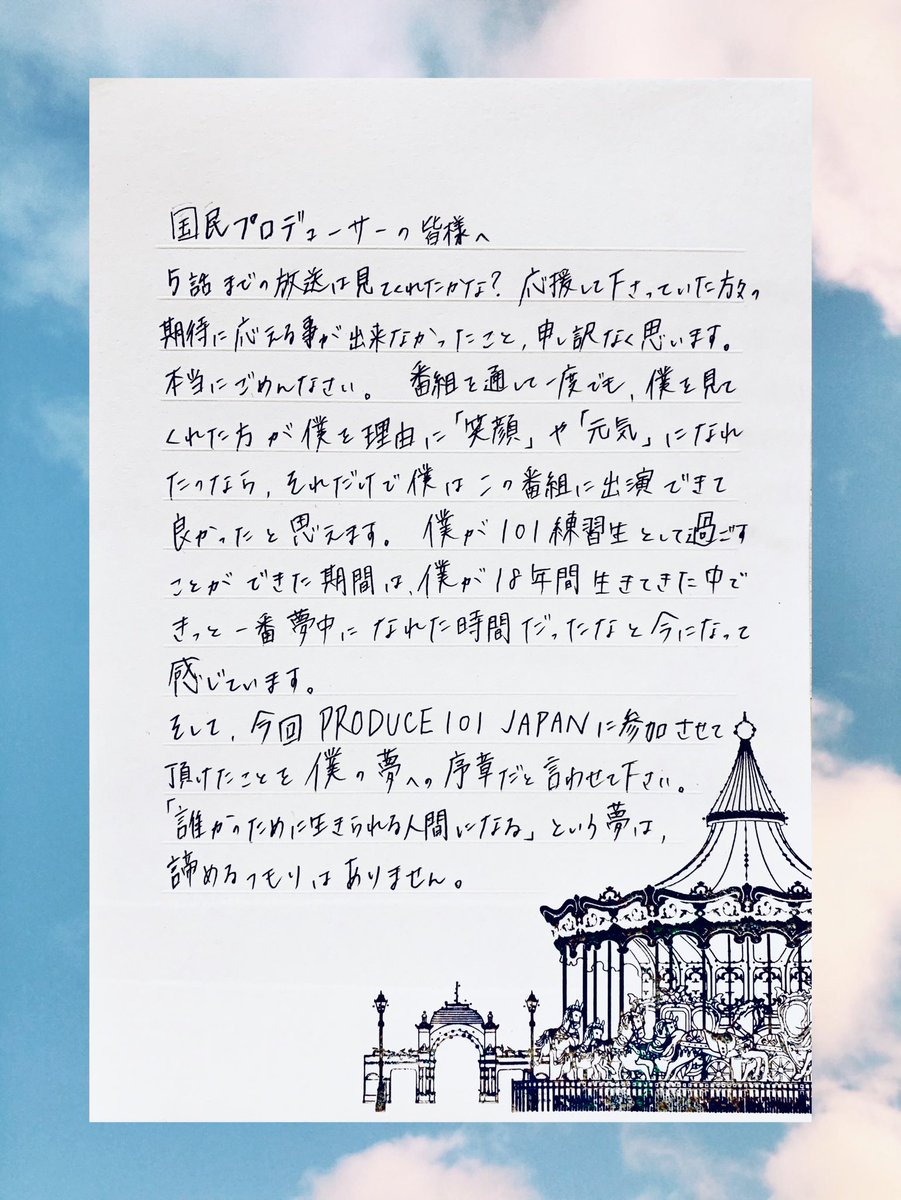 国民プロデューサーの皆様へ
5話までの放送は見てくれたかな？応援して下さっていた方の
期待に応える事が出来なかったこと、申し訳なく思います。
本当にごめんなさい。 番組を通して一度でも、僕を見て
くれた方が僕を理由に「笑顔」や「元気」になれ
たのなら、それだけで僕はこの番組に出演できて
良かったと思えます。 僕が101練習生として過ごす
ことができた期間は、僕が18年間生きてきた中で
きっと一番夢中になれた時間だったなと今になって
感じています。
そして、今回 PRODUCE101 JAPANに参加させて
頂けたことを僕の夢への序章だと言わせて下さい。
「誰かのために生きられる人間になる」という夢は、
諦めるつもりはありません。